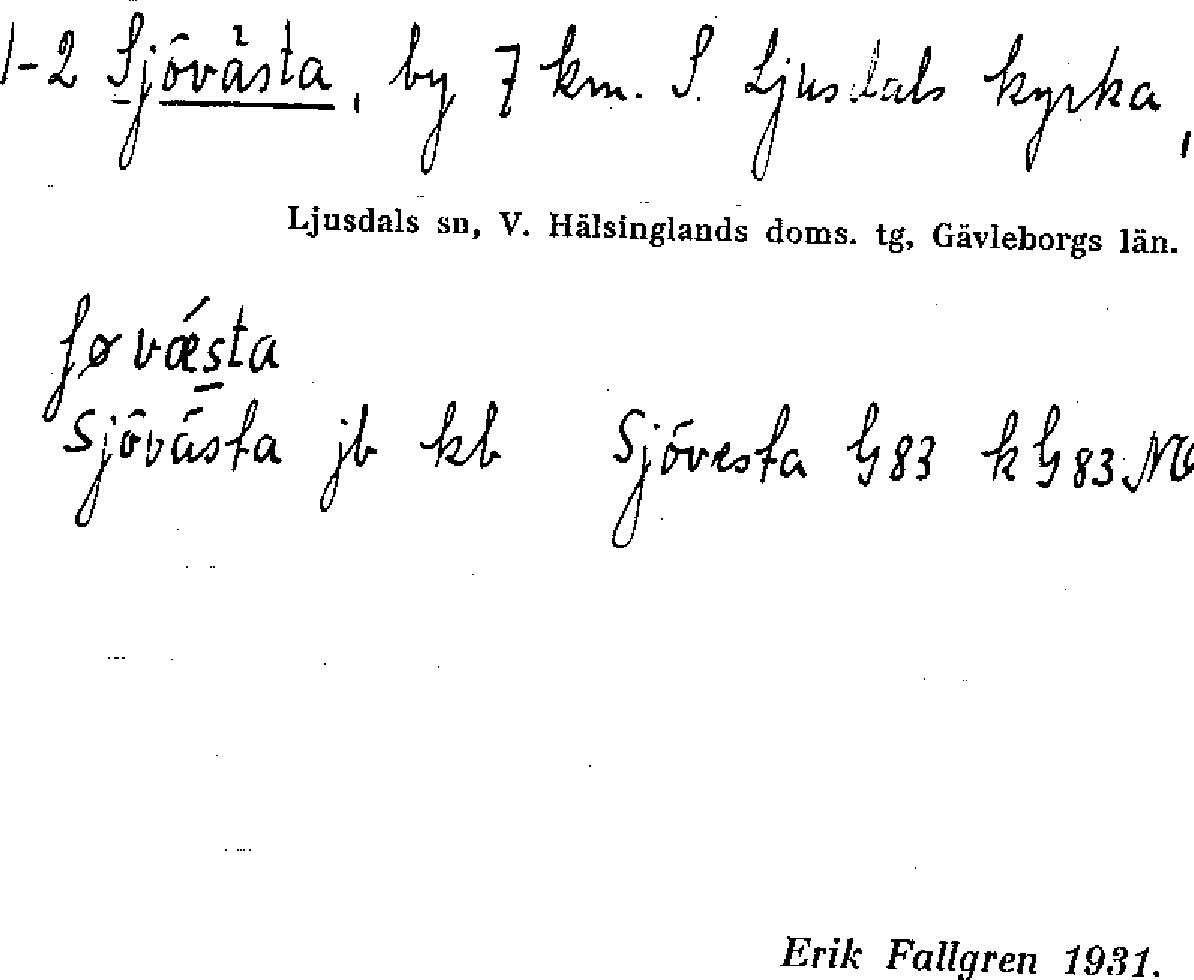 1-2 Sjövästa, by 7 km. S. Ljusdals kyrka,
Ljusdals sn, V. Hälsinglands doms. tg, Gävleborgs län.
ʃøvǽsta
Sjövästa jb kb Sjövesta G83 kG83 NO
Erik Fallgren 1931.